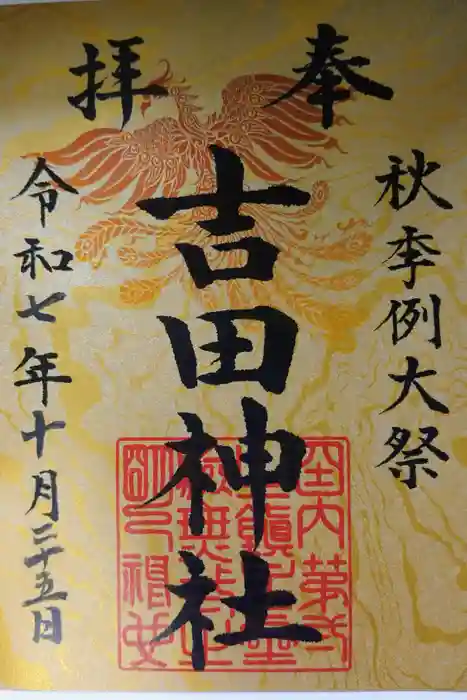 奉拝
秋季例大祭
吉田神社
令和七年十月二十五日